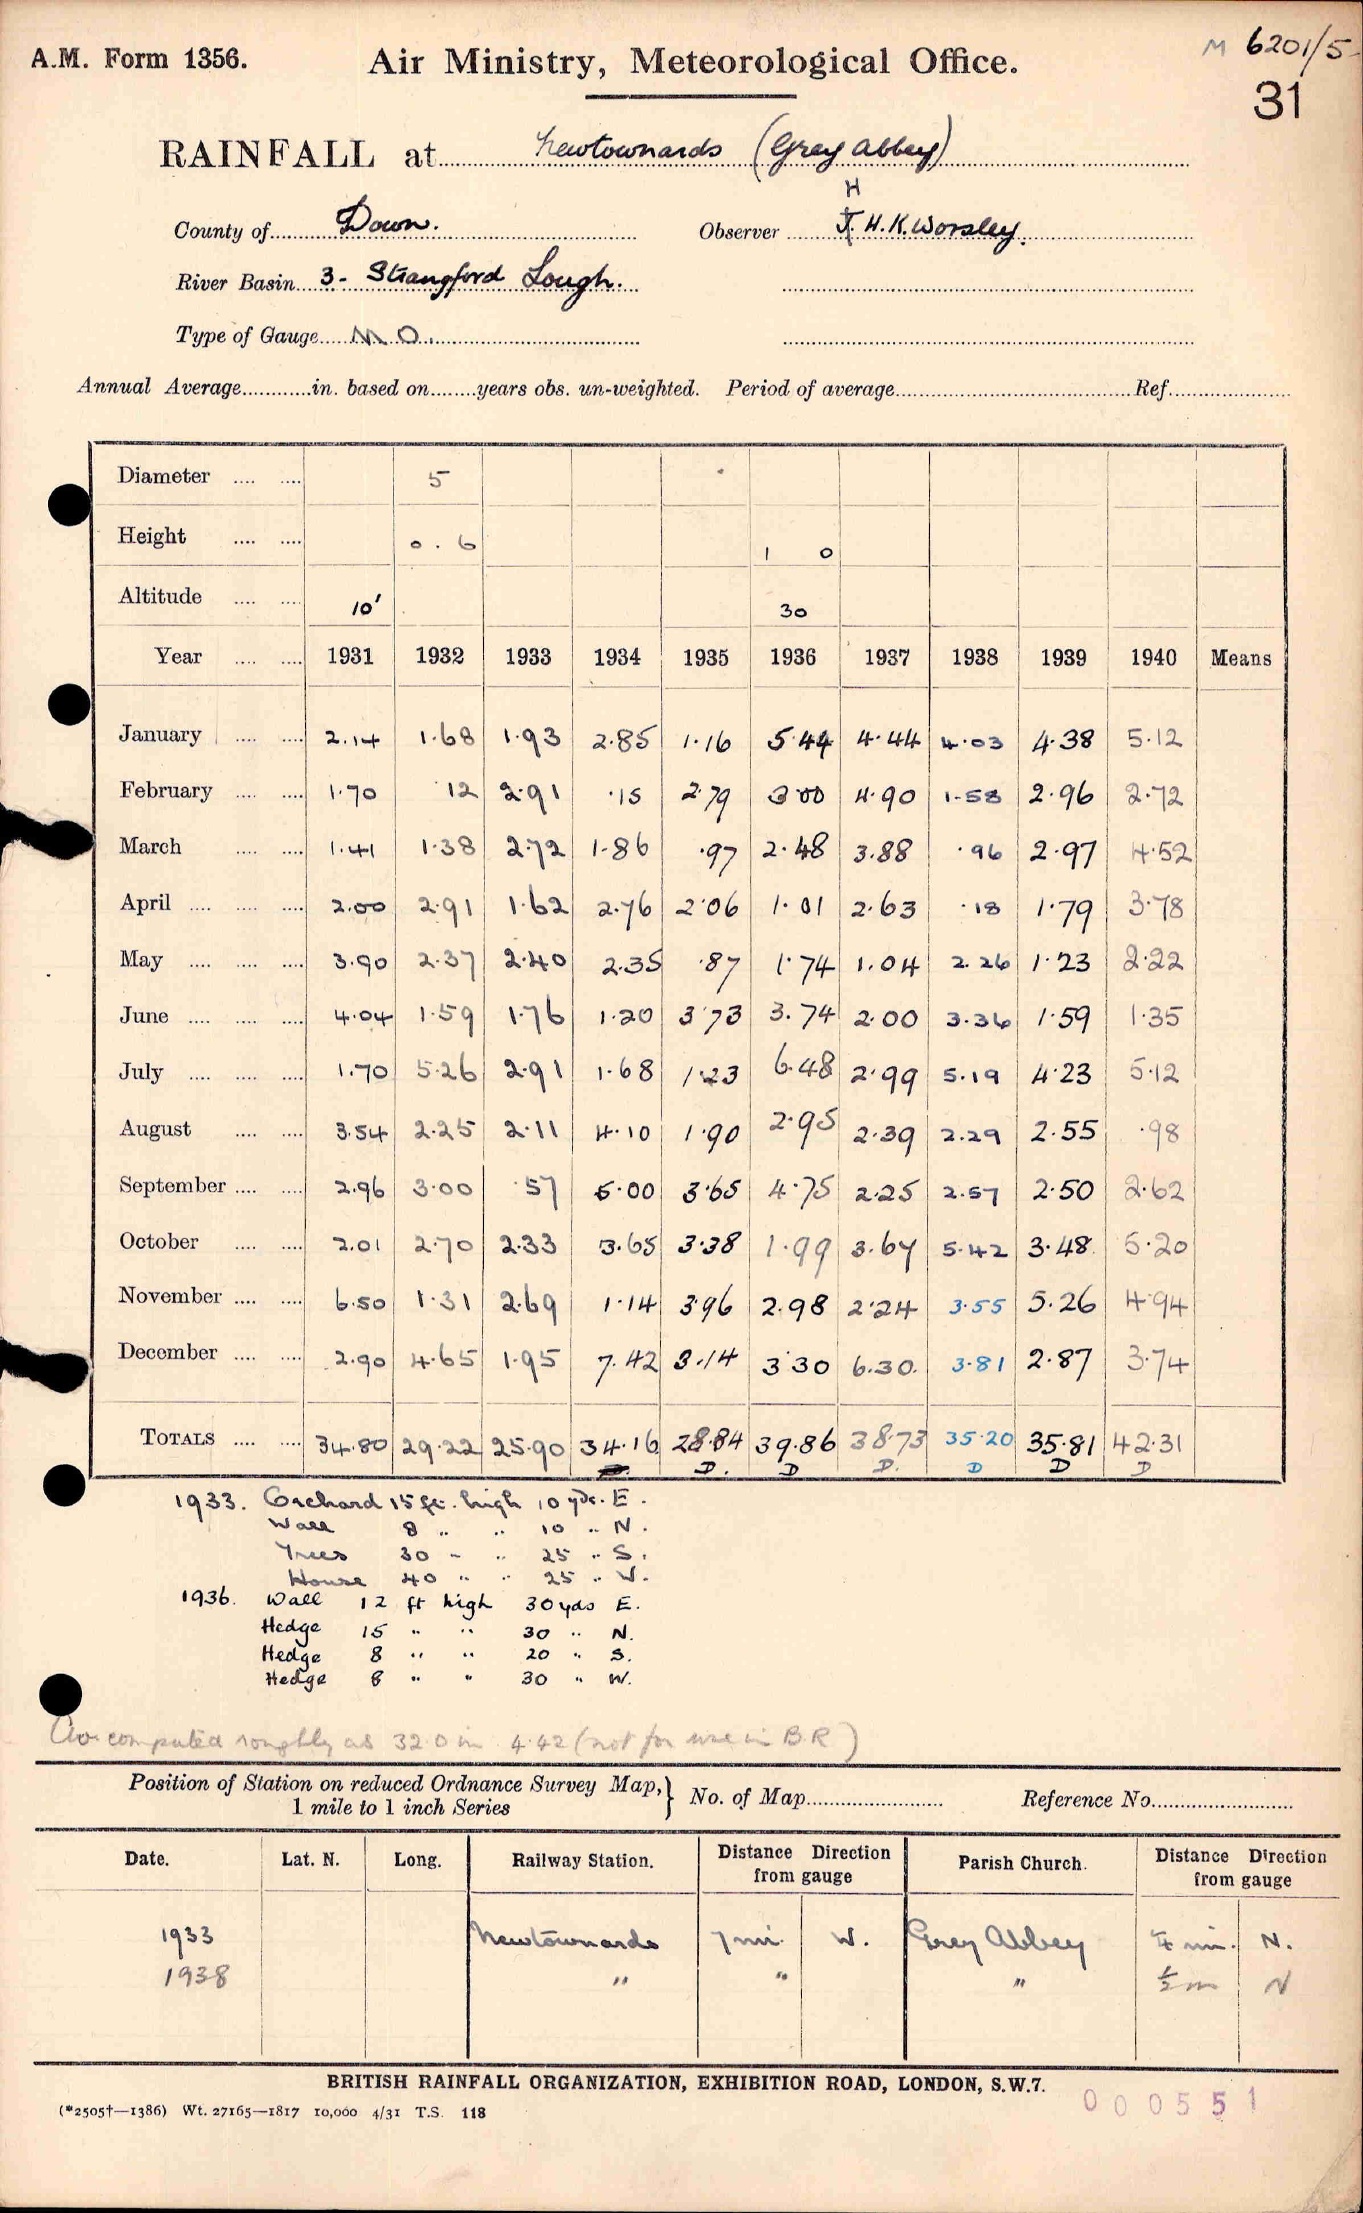 M 6201/5
A.M. Form 1356. Air Ministry, Meteorological Office.
31
RAINFALL at Newtownards (Grey Abbey)
H
County of Down. Observer J. H. K. Worsley.
River Basin 3 - Strangford Lough.
Type of Gauge M O.
Annual Average............in. based on........years obs. un-weighted. Period of average........................Ref.............
Diameter .... .... 5
Height .... .... 0 . 6 1 0
Altitude .... .... 10' 30
Year .... .... 1931 1932 1933 1934 1935 1936 1937 1938 1939 1940 Means
January .... .... 2.14 1.68 1.93 2.85 1.16 5.44 4.44 4.03 4.38 5.12
February .... .... 1.70 .12 2.91 .15 2.79 3.00 4.90 1.58 2.96 2.72
March .... .... 1.41 1.38 2.72 1.86 .97 2.48 3.88 .96 2.97 4.52
April .... .... .... 2.00 2.91 1.62 2.76 2.06 1.01 2.63 .18 1.79 3.78
May .... .... .... 3.90 2.37 2.40 2.35 .87 1.74 1.04 2.26 1.23 2.22
June .... .... .... 4.04 1.59 1.76 1.20 3.73 3.74 2.00 3.36 1.59 1.35
July .... .... .... 1.70 5.26 2.91 1.68 1.23 6.48 2.99 5.19 4.23 5.12
August .... .... 3.54 2.25 2.11 4.10 1.90 2.95 2.39 2.29 2.55 .98
September .... .... 2.96 3.00 .57 5.00 3.65 4.75 2.25 2.57 2.50 2.62
October .... .... 2.01 2.70 2.33 3.65 3.38 1.99 3.67 5.42 3.48 5.20
November .... .... 6.50 1.31 2.69 1.14 3.96 2.98 2.24 3.55 5.26 4.94
December .... .... 2.90 4.65 1.95 7.42 3.14 3.30 6.30 3.81 2.87 3.74
TOTALS .... .... 34.80 29.22 25.90 34.16 28.84 39.86 38.73 35.20 35.81 42.31
D. D D. D D D
1933. Orchard 15 ft. high 10 yds. E.
Wall 8 " " 10 " N.
Trees 30 " " 25 " S.
House 40 " " 25 " W.
1936. Wall 12 ft high 30 yds E.
Hedge 15 " " 30 " N.
Hedge 8 " " 20 " S.
Hedge 8 " " 30 " W.
Av. computed roughly as 32.0 in 4.42 (not for use in B.R)
Position of Station on reduced Ordnance Survey Map,} No. of Map........................ Reference No........................
1 mile to 1 inch Series
Date. Lat. N. Long. Railway Station. Distance Direction from gauge Parish Church. Distance Direction from gauge
1933 Newtownards 7 mi. W. Grey Abbey ¼ mi. N.
1938 " " " ½ m N
BRITISH RAINFALL ORGANIZATION, EXHIBITION ROAD, LONDON, S.W.7.
(*2505†—1386) Wt. 27165—1817 10,000 4/31 T.S. 118
000551